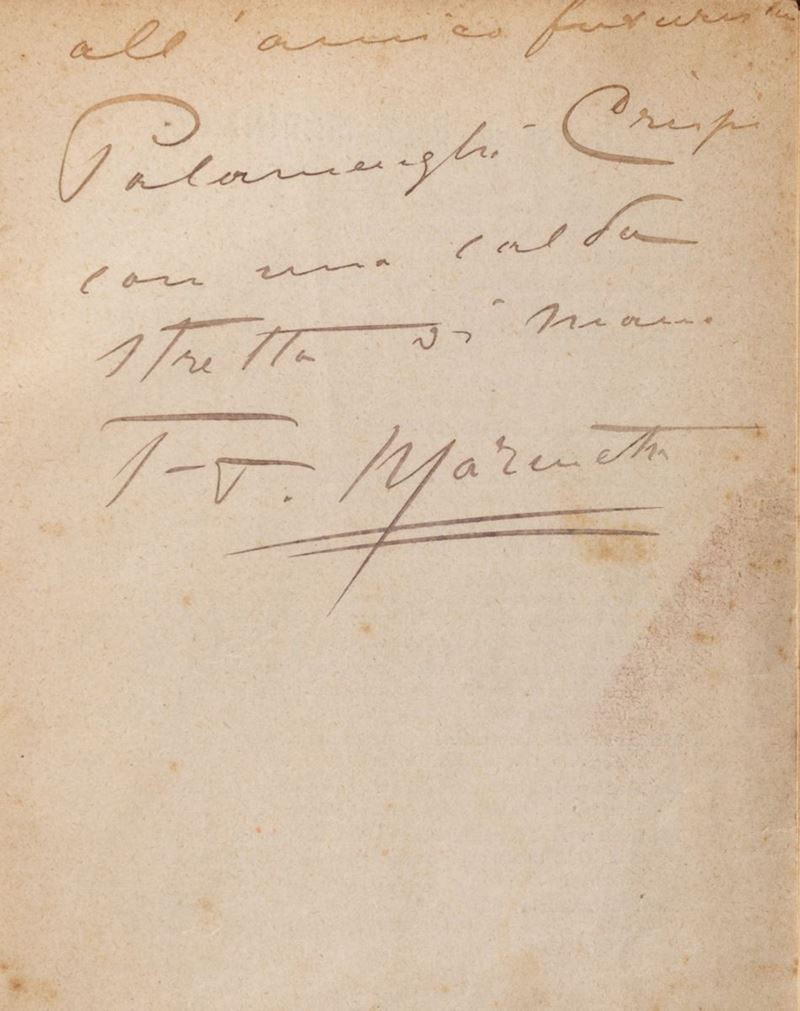 all'amico futurista
Palamenghi-Crispi
con una calda
stretta di mano
F-T. Marinetti